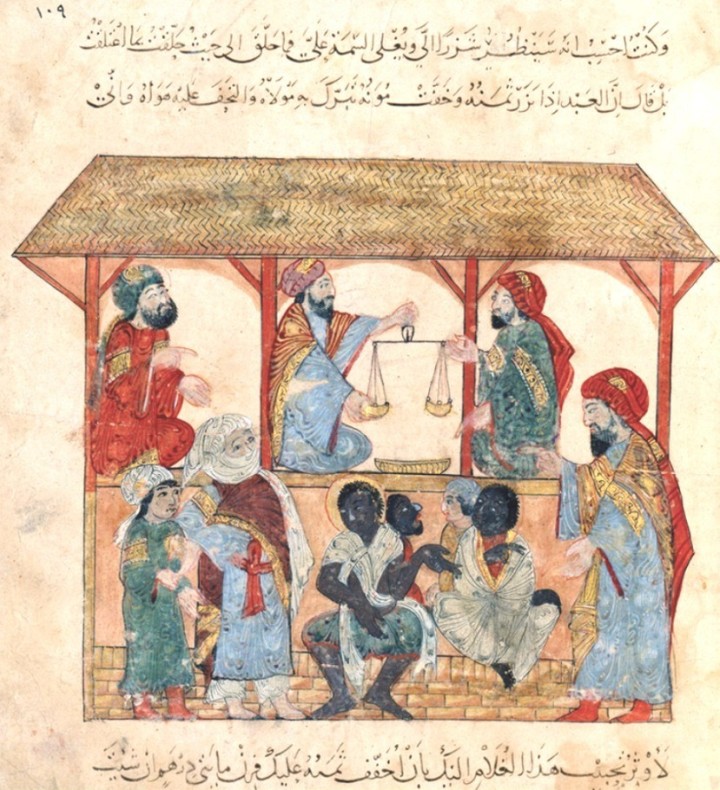 ١٠٩
وكنت احسب انه سينظر شزرا الي ويغلي السيمة علي فما حلق الى حيث حلقت
بل قال ان العبد اذا نزر ثمنه وخفت مونه تبرك به مولاه والتحف عليه هواه واني
لاوثر تحبيب هذا الغلام اليك بان اخفف ثمنه عليك فزن مايتي درهم ان شيت